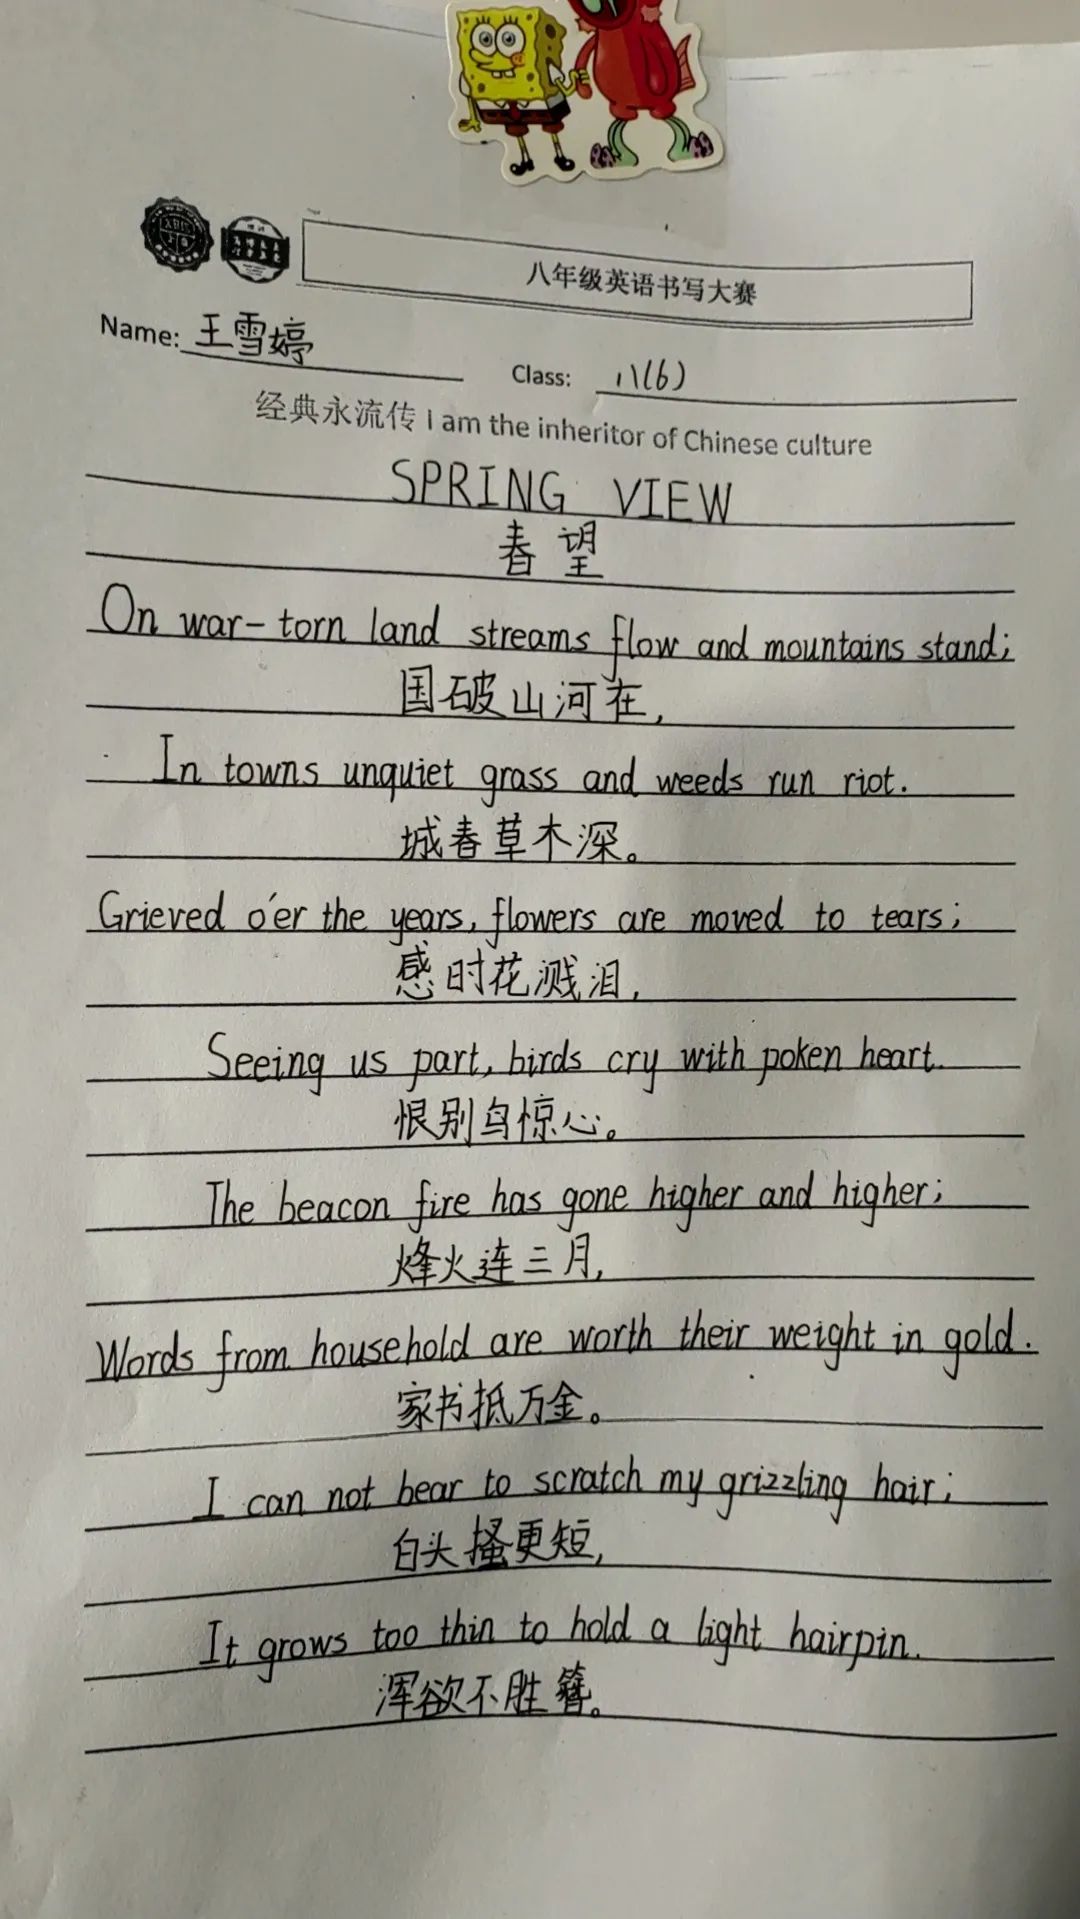 八年级英语书写大赛
Name: 王雪婷
Class: 八(6)
经典永流传 I am the inheritor of Chinese culture
SPRING VIEW
春望
On war-torn land streams flow and mountains stand;
国破山河在,
In towns unquiet grass and weeds run riot.
城春草木深。
Grieved o'er the years, flowers are moved to tears;
感时花溅泪,
Seeing us part, birds cry with poken heart.
恨别鸟惊心。
The beacon fire has gone higher and higher;
烽火连三月,
Words from household are worth their weight in gold.
家书抵万金。
I can not bear to scratch my grizzling hair;
白头搔更短,
It grows too thin to hold a light hairpin.
浑欲不胜簪。